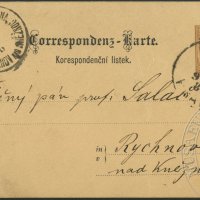 Correspondenz-Karte.
Korespondenční lístek.
pán prof. Salač
in
v
Rychnov
nad Kněž